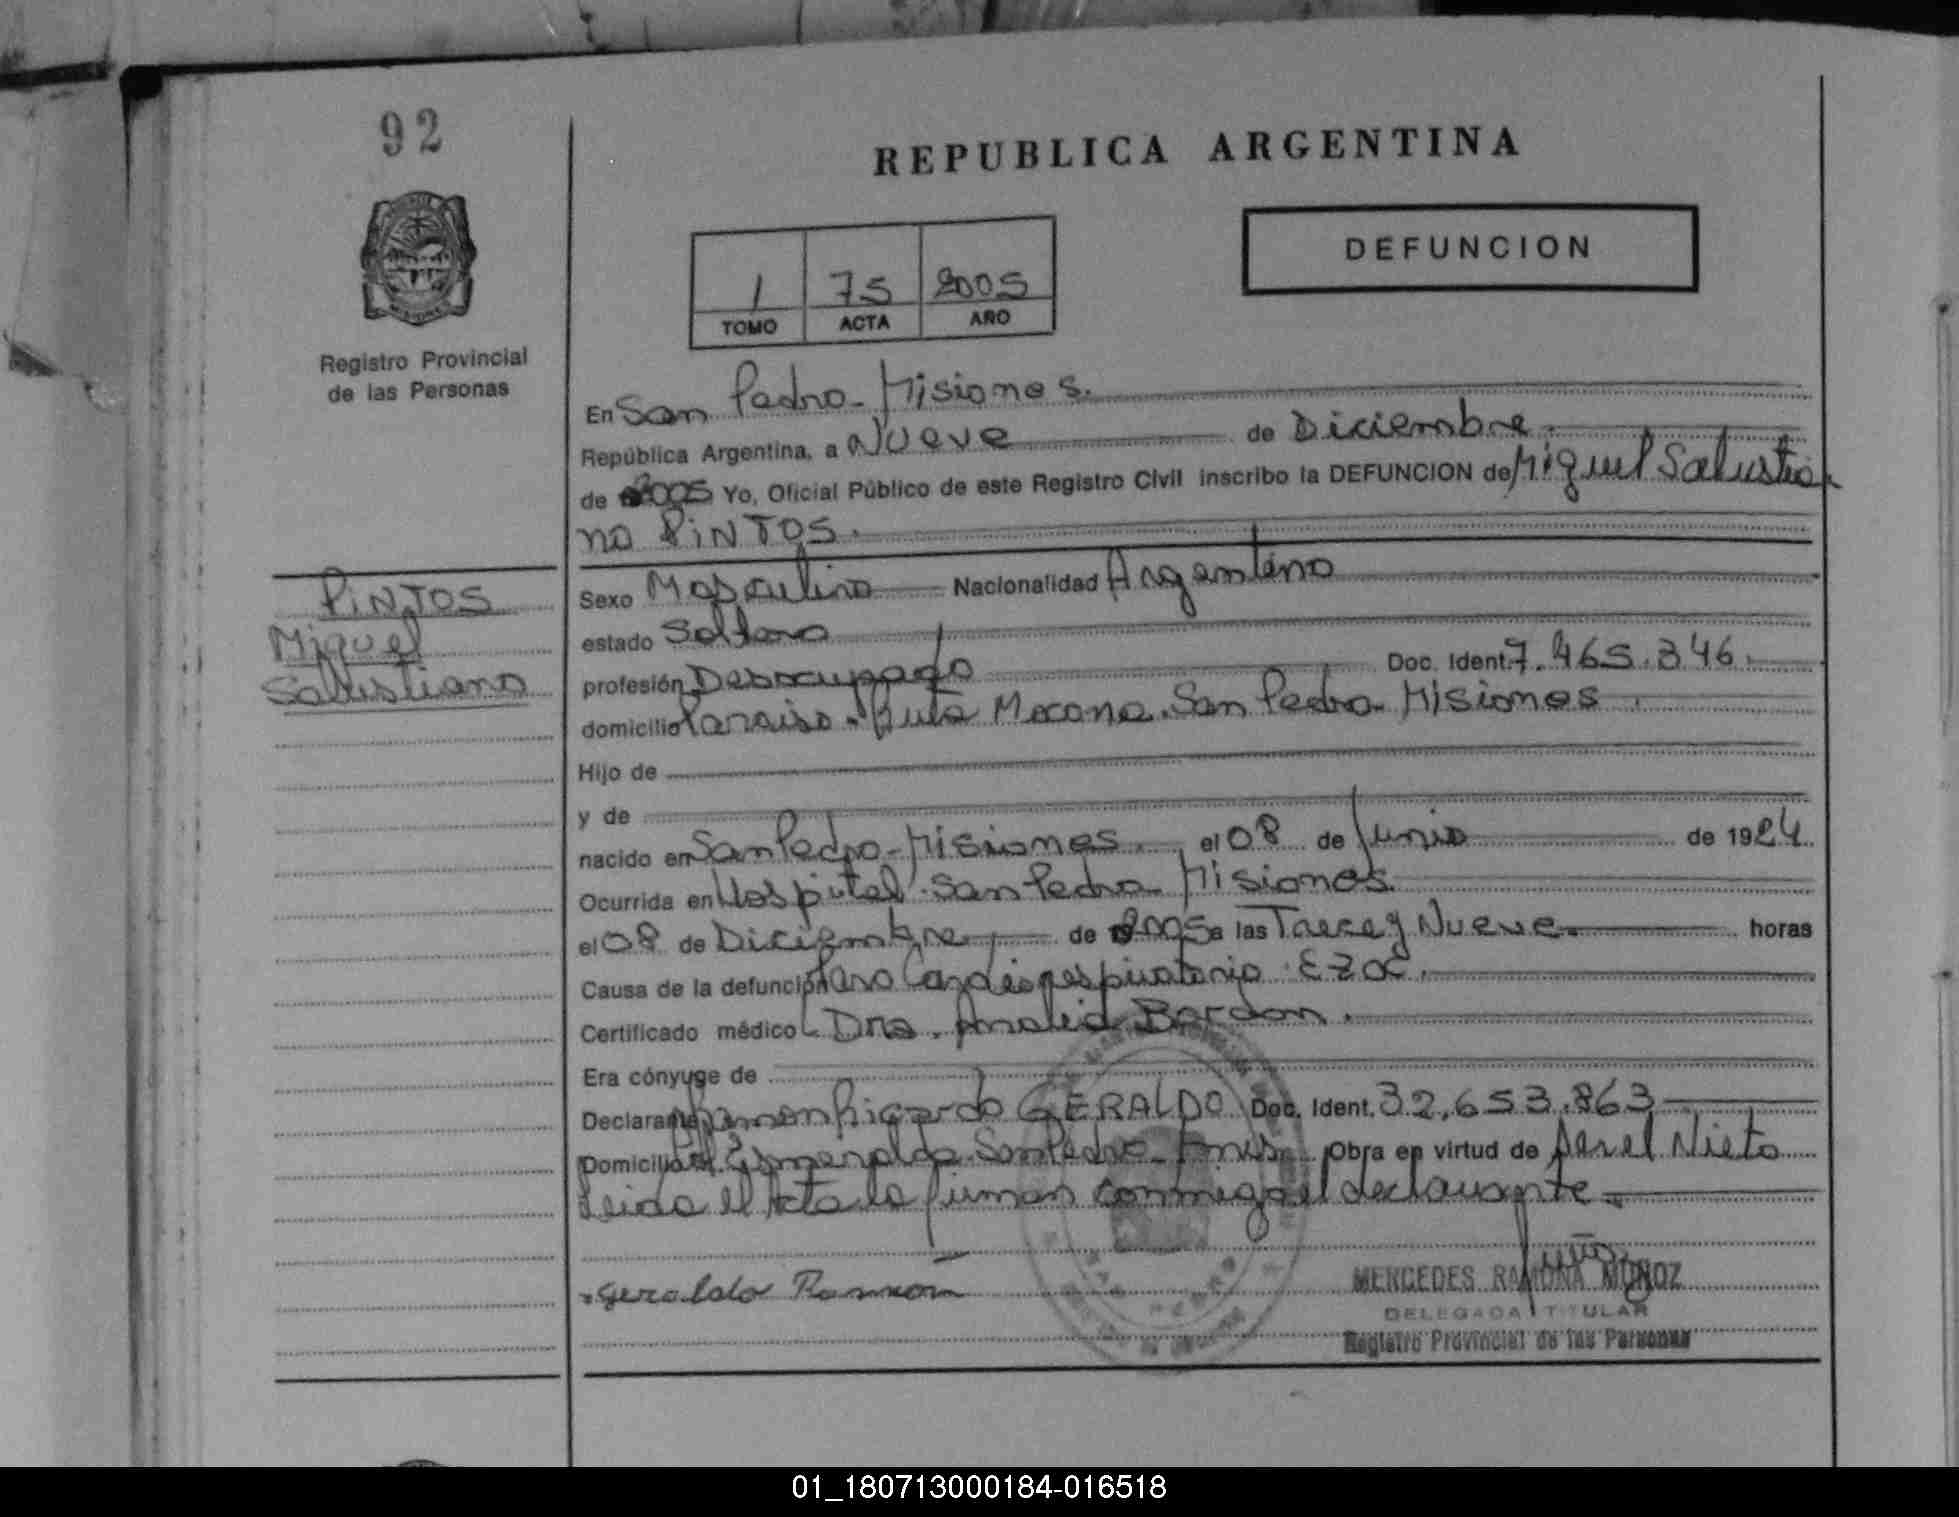 92
REPUBLICA ARGENTINA
DEFUNCION
1 75 2005
TOMO ACTA AÑO
Registro Provincial
de las Personas
En San Pedro - Misiones.
República Argentina, a Nueve de Diciembre.
de 2005 Yo, Oficial Público de este Registro Civil inscribo la DEFUNCION de Miguel Salustia
no PINTOS.
PINTOS
Miguel
Salustiano
Sexo Masculino Nacionalidad Argentino
estado Soltero
profesión Desocupado Doc. Ident. 7.465.346.
domicilio Paraiso. Ruta Mocona. San Pedro - Misiones.
Hijo de
y de
nacido en San Pedro - Misiones. el 08 de Junio de 1924.
Ocurrida en Hospital San Pedro - Misiones.
el 08 de Diciembre de 2005 a las Trece y Nueve horas
Causa de la defunción Paro Cardiorespiratorio.
Certificado médico Dra. Analia Bordon.
Era cónyuge de
Declarante Ramon Ricardo GERALDO Doc. Ident. 32.653.863
Domicilio Esmeralda. San Pedro Obra en virtud de Nieto
Leida el Acta la firman conmigo el declarante.
Geraldo Ramón
MERCEDES RAMONA MUÑOZ
DELEGADA TITULAR
Registro Provincial de las Personas
01_180713000184-016518